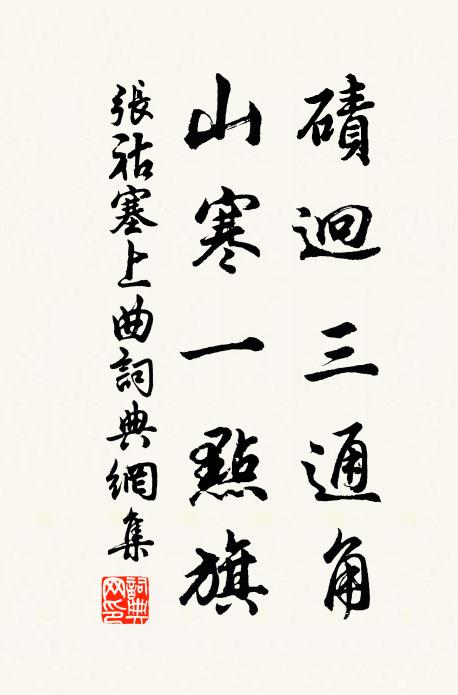 磧迥三通角
山寒一點旗
張祜塞上曲詞典網集
詞典網印